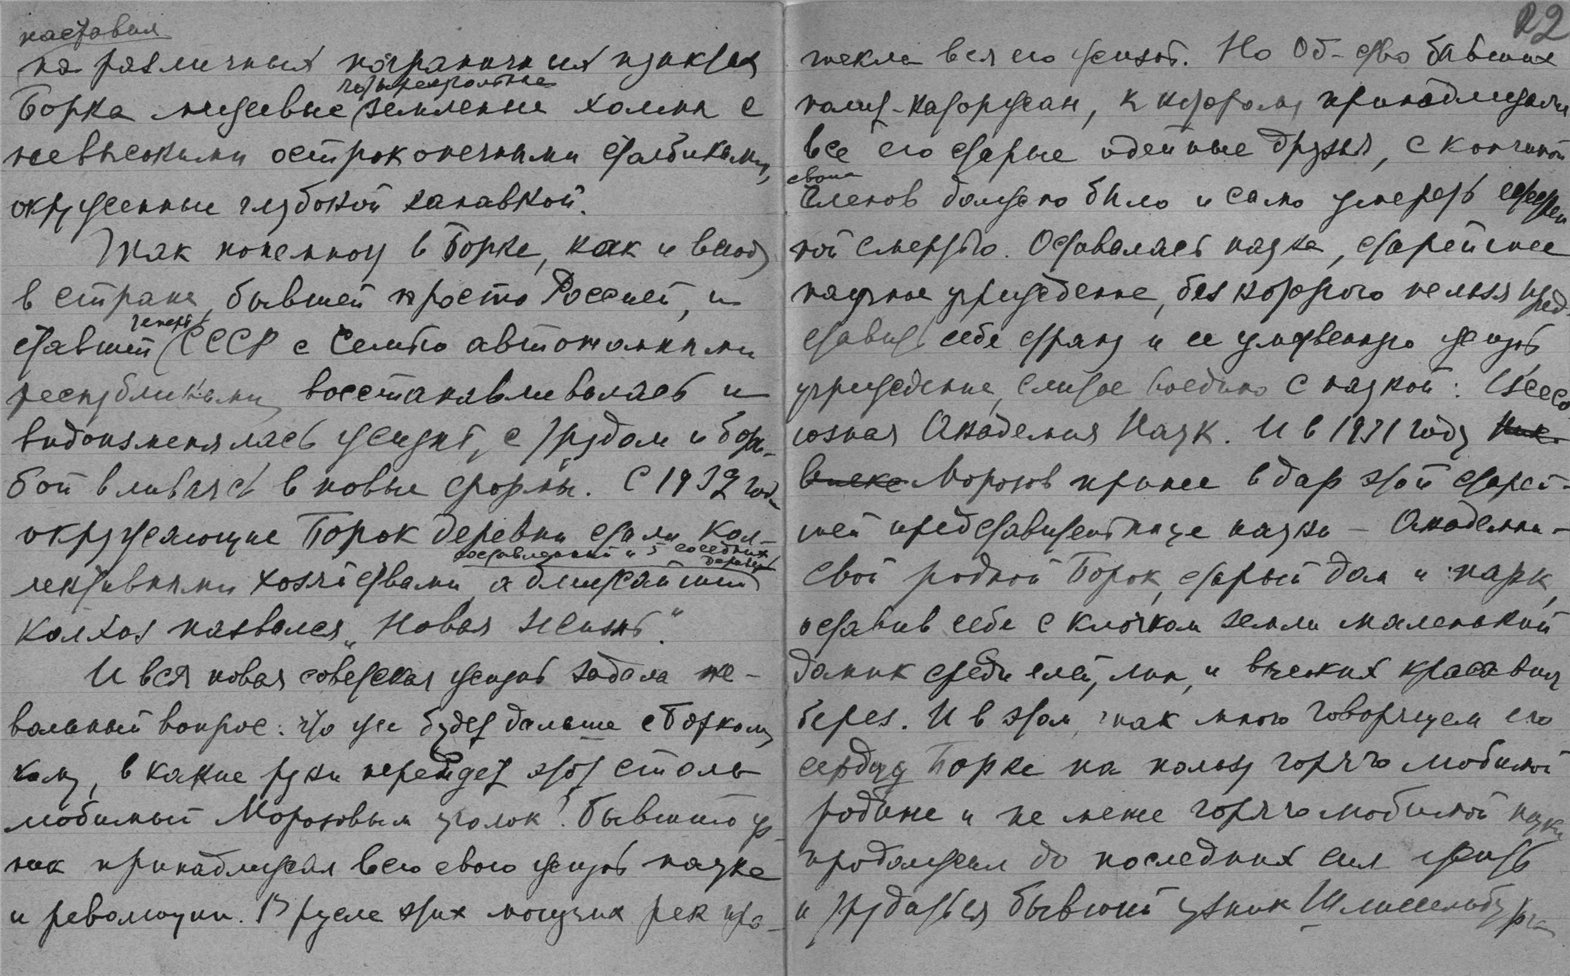 наставил
на различных пограничных пунктах
Борка межевые четырехугольные земляные холмы с
невысокими остроконечными столбиками,
окруженные глубокой канавкой.
Так понемногу в Борке, как и всюду
в стране, бывшей просто Россией, и
ставшей теперь СССР с семью автономными
республиками, восстанавливалась и
видоизменялась жизнь, с трудом и борь-
бой вливаясь в новые формы. С 1932 года
окружающие Борок деревни стали кол-
лективными хозяйствами, а ближайший составленный из 5 соседних деревень
колхоз назвался „Новая жизнь“.
И вся новая советская жизнь задала не-
вольный вопрос: что же будет дальше с Борком,
кому, в какие руки перейдет этот столь
любимый Морозовым уголок? Бывший уз-
ник принадлежал всю свою жизнь науке
и революции. В русле этих могучих рек про-
22
текла вся его жизнь. Но Об-ство бывших
полит-каторжан, к которому принадлежали
все его старые идейные друзья, с кончиной
своих членов должно было и само умереть естествен
ной смертью. Оставалась наука, старейшее
научное учреждение, без которого нельзя пред-
ставить себе страну и ее умственную жизнь
учреждение, слитое воедино с наукой: Всесо
юзная Академия Наук. И в 1931 году
Морозов принес в дар этой старей-
шей представительнице науки – Академии –
свой родной Борок, старый дом и парк,
оставив себе с клочком земли маленький
домик среди елей, лип, и высоких красавиц
берез. И в этом, так много говорящем его
сердцу Борке на пользу горячо любимой
родине и не менее горячо любимой науки
продолжал до последних сил жить
и трудиться бывший узник Шлиссельбурга